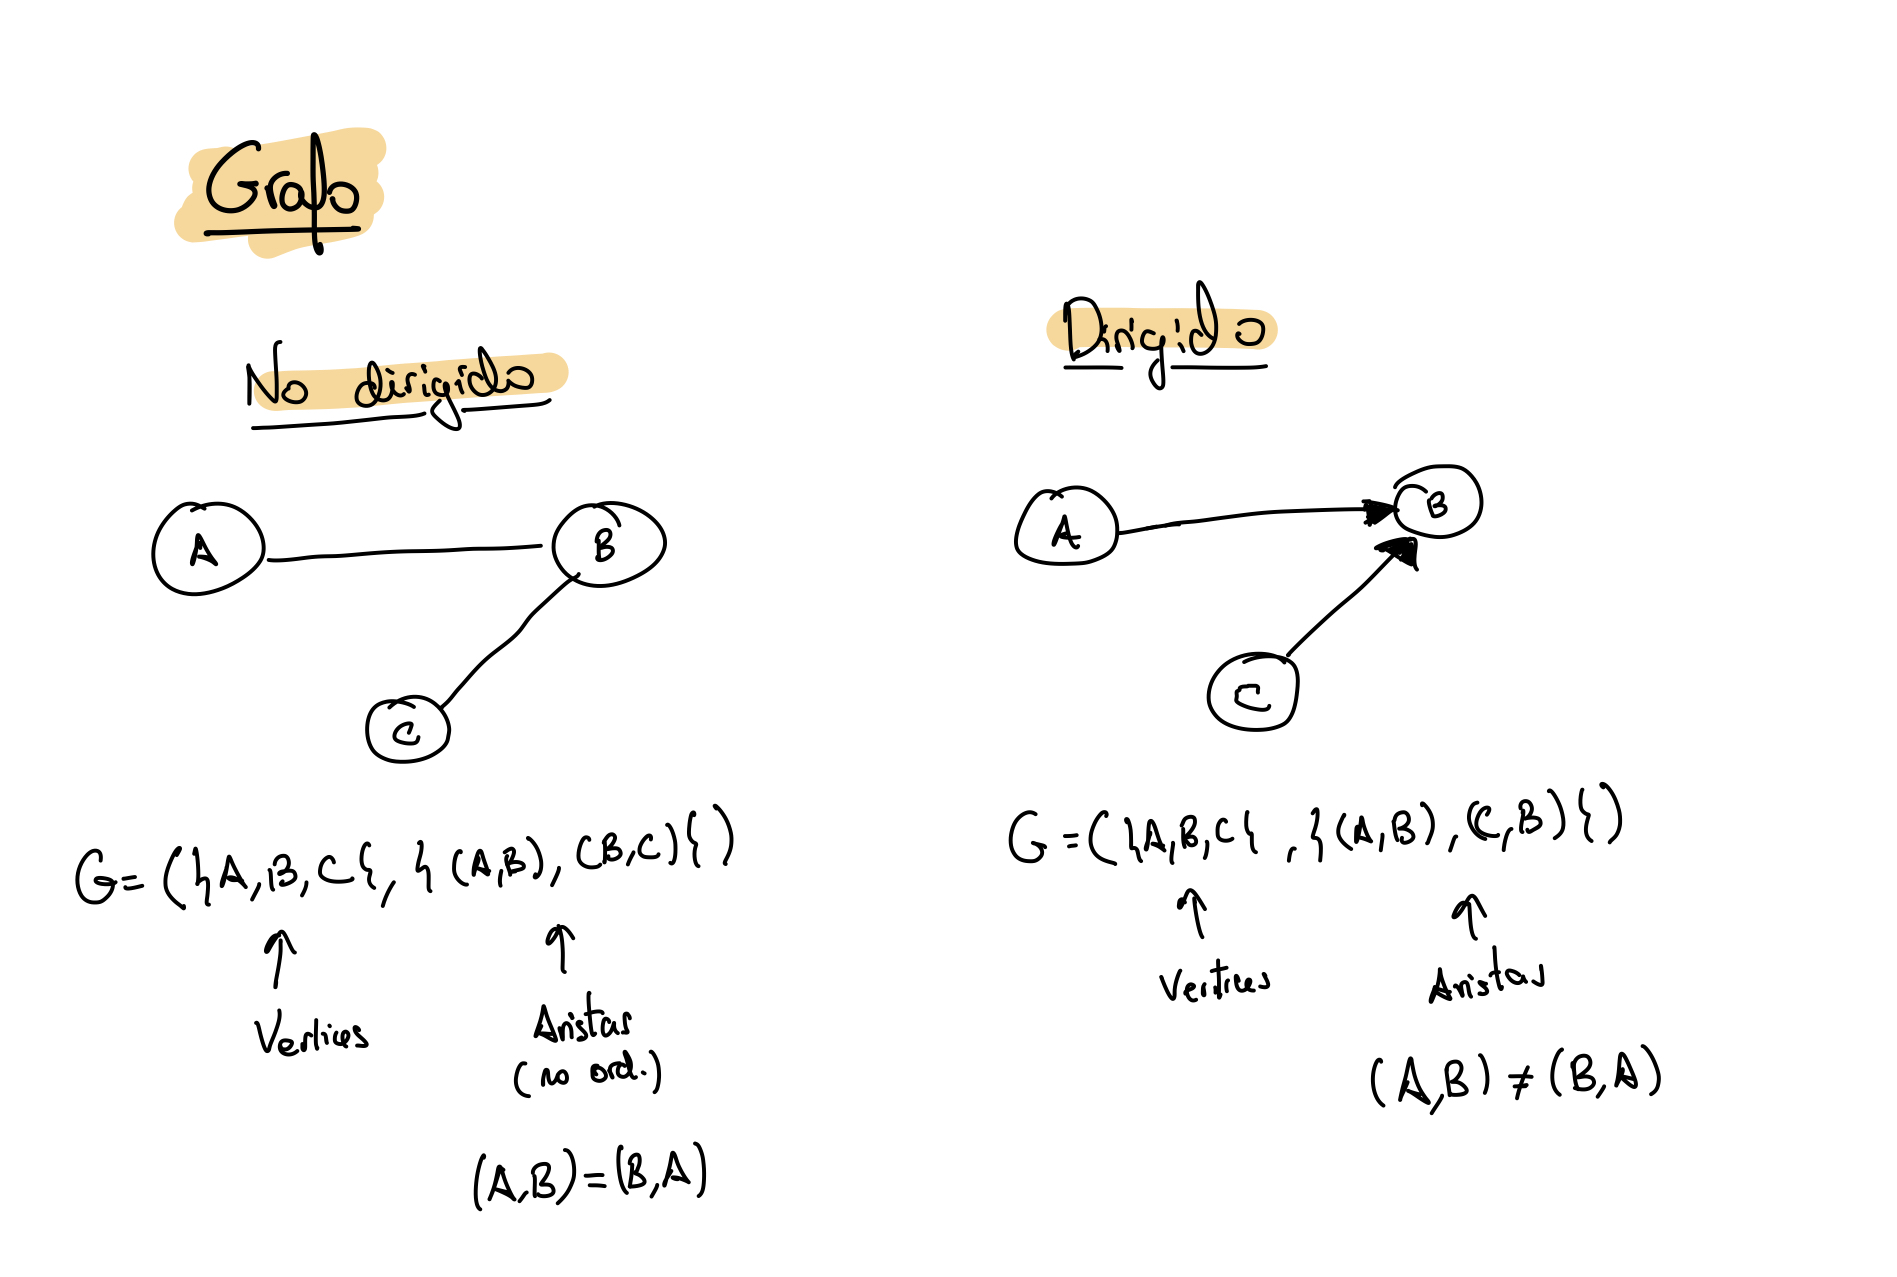 Grafo
No dirigido
A
B
C
G = ({A, B, C}, {(A,B), (B,C)})
Vertices
Aristas
(no ord.)
(A,B) = (B,A)
Dirigido
A
B
C
G = ({A, B, C}, {(A,B), (C,B)})
Vertices
Aristas
(A,B) ≠ (B,A)